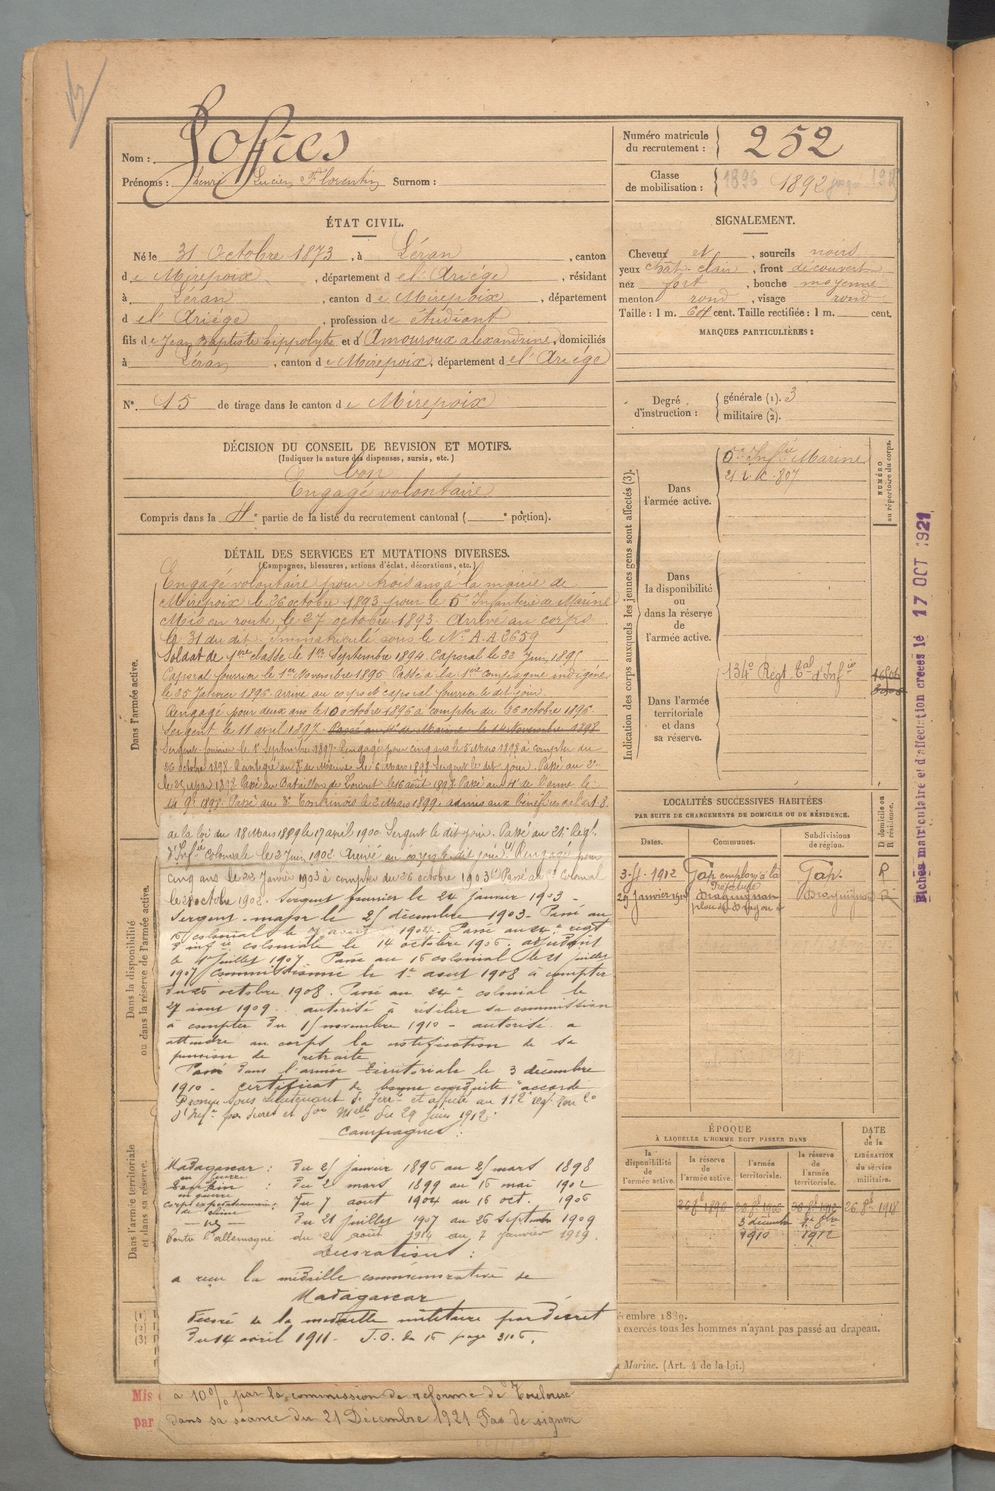 Nom : Joffres
Prénoms : Henri Lucien Florentin Surnom :
Numéro matricule du recrutement : 252
Classe de mobilisation : 1896 1892
ÉTAT CIVIL.
Né le 31 Octobre 1873, à Léran, canton
de Mirepoix, département de l'Ariège, résidant
à Léran, canton de Mirepoix, département
de l'Ariège, profession de étudiant
fils de Jean Baptiste hippolyte et d'Amouroux alexandrine, domiciliés
à Léran, canton de Mirepoix, département de l'Ariége
N° 15 de tirage dans le canton de Mirepoix
SIGNALEMENT.
Cheveux et, sourcils noirs
yeux chât. clair, front découvert
nez fort, bouche moyenne
menton rond, visage rond
Taille : 1 m. 64 cent. Taille rectifiée : 1 m. cent.
MARQUES PARTICULIÈRES :
Degré d'instruction : générale (1). 3
militaire (2).
DÉCISION DU CONSEIL DE REVISION ET MOTIFS.
(Indiquer la nature des dispenses, sursis, etc.)
bon
Engagé volontaire
Compris dans la 4e partie de la liste du recrutement cantonal ( e portion).
DÉTAIL DES SERVICES ET MUTATIONS DIVERSES.
(Campagnes, blessures, actions d'éclat, décorations, etc.)
Dans l'armée active.
Engagé volontaire pour trois ans à la mairie de
Mirepoix le 26 octobre 1893 pour le Infanterie de Marine
Mis en route le 27 octobre 1893. Arrivé au corps
le 31 du dit immatriculé sous le N° A.A 2659
Soldat de 1ère classe le 1er Septembre 1894. Caporal le 22 Juin 1895
Caporal fourrier le 1er Novembre 1895 Passé à la compagnie indigène
le 25 Janvier 1896 arrivé au corps et caporal fourrier le dit jour.
Rengagé pour deux ans le octobre 1896 à compter du 26 octobre 1896
Sergent le 11 avril 1897.
Sergent fourrier le 1er Septembre 1897 Rengagé pour cinq ans le 5 Mars 1898 à compter du
26 octobre 1898. Réintégré au de Marine le 6 Mars 1898 Sergent le dit jour. Passé au
le Passé au Bataillon de Lorient le 16 août 1898 Passé au de l'arme le
Passé au 3e Tonkinois le 2 Mars 1899, admis aux bénéfices de l'art. 8
de la loi du 18 Mars 1889 le 17 avril 1900. Sergent le dit jour. Passé au 21e Régt
d'Infie coloniale le 2 Juin 1902 Arrivé au corps le dit jour Rengagé pour
cinq ans le 23 Janvier 1903 à compter du 26 octobre 1903 Passé au Colonial
le octobre 1902. Sergent fourrier le 24 janvier 1903 -
Sergent-major le 21 décembre 1903 - Passé au
colonial le 7 août 1904. Passé au 24e régt
d'infie coloniale le 14 octobre 1906. adjudant
le 1er juillet 1907 Passé au 16 colonial le 21 juillet
1907 Commissionné le 1er aout 1908 à compter
du 26 octobre 1908. Passé au 24e colonial le
27 1909. autorisé à résilier sa commission
à compter du 15 novembre 1910 - autorisé a
attendre au corps la notification de sa
pension de retraite
Passé dans l'armée territoriale le 3 décembre
1910. certificat de bonne conduite accordé
Promu Sous lieutenant de et affecté au 112e régt
d'Infie par décret et du 29 Juin 1912.
Campagnes :
Madagascar : du 25 janvier 1896 au 25 mars 1898
en guerre
Tonkin : du 2 mars 1899 au 15 mai 1902
en guerre
corps expéditionnaire de Chine : du 7 aout 1904 au 15 oct. 1906
du 21 juillet 1907 au 26 septembre 1909
Contre l'allemagne du 2 août 1914 au 7 janvier 1919.
Décorations :
a reçu la médaille commémorative de
Madagascar
Décoré de la médaille militaire par Décret
du 14 avril 1911. J.O. du 15 page 3106.
à 10% par la commission de réforme de Toulouse
dans sa séance du 21 Décembre 1921 Pas de
Mis
par
Dans la disponibilité ou dans la réserve de l'armée active.
Dans l'armée territoriale et dans sa réserve.
(1)
(2)
(3)
Indication des corps auxquels les jeunes gens sont affectés (3).
NUMÉRO au répertoire du corps.
Dans l'armée active. Infie Marine
21 L.K. 807
Dans la disponibilité ou dans la réserve de l'armée active.
Dans l'armée territoriale et dans sa réserve. 134e Régt tal d'Infie
LOCALITÉS SUCCESSIVES HABITÉES
PAR SUITE DE CHANGEMENTS DE DOMICILE OU DE RÉSIDENCE.
Dates. Communes. Subdivisions de région. D domicile ou R résidence.
1912 Gap employé à la Préfecture Gap. R
29 Janvier 1914 Draguignan Draguignan
ÉPOQUE
À LAQUELLE L'HOMME DOIT PASSER DANS
la disponibilité de l'armée active.
la réserve de l'armée active.
l'armée territoriale.
la réserve de l'armée territoriale.
DATE de la LIBÉRATION du service militaire.
3 décembre 1910
1912
écembre 1889.
exercés tous les hommes n'ayant pas passé au drapeau.
Marine. (Art. 4 de la loi.)
Fiches matriculaire et d'affectation créées le 17 OCT 1921